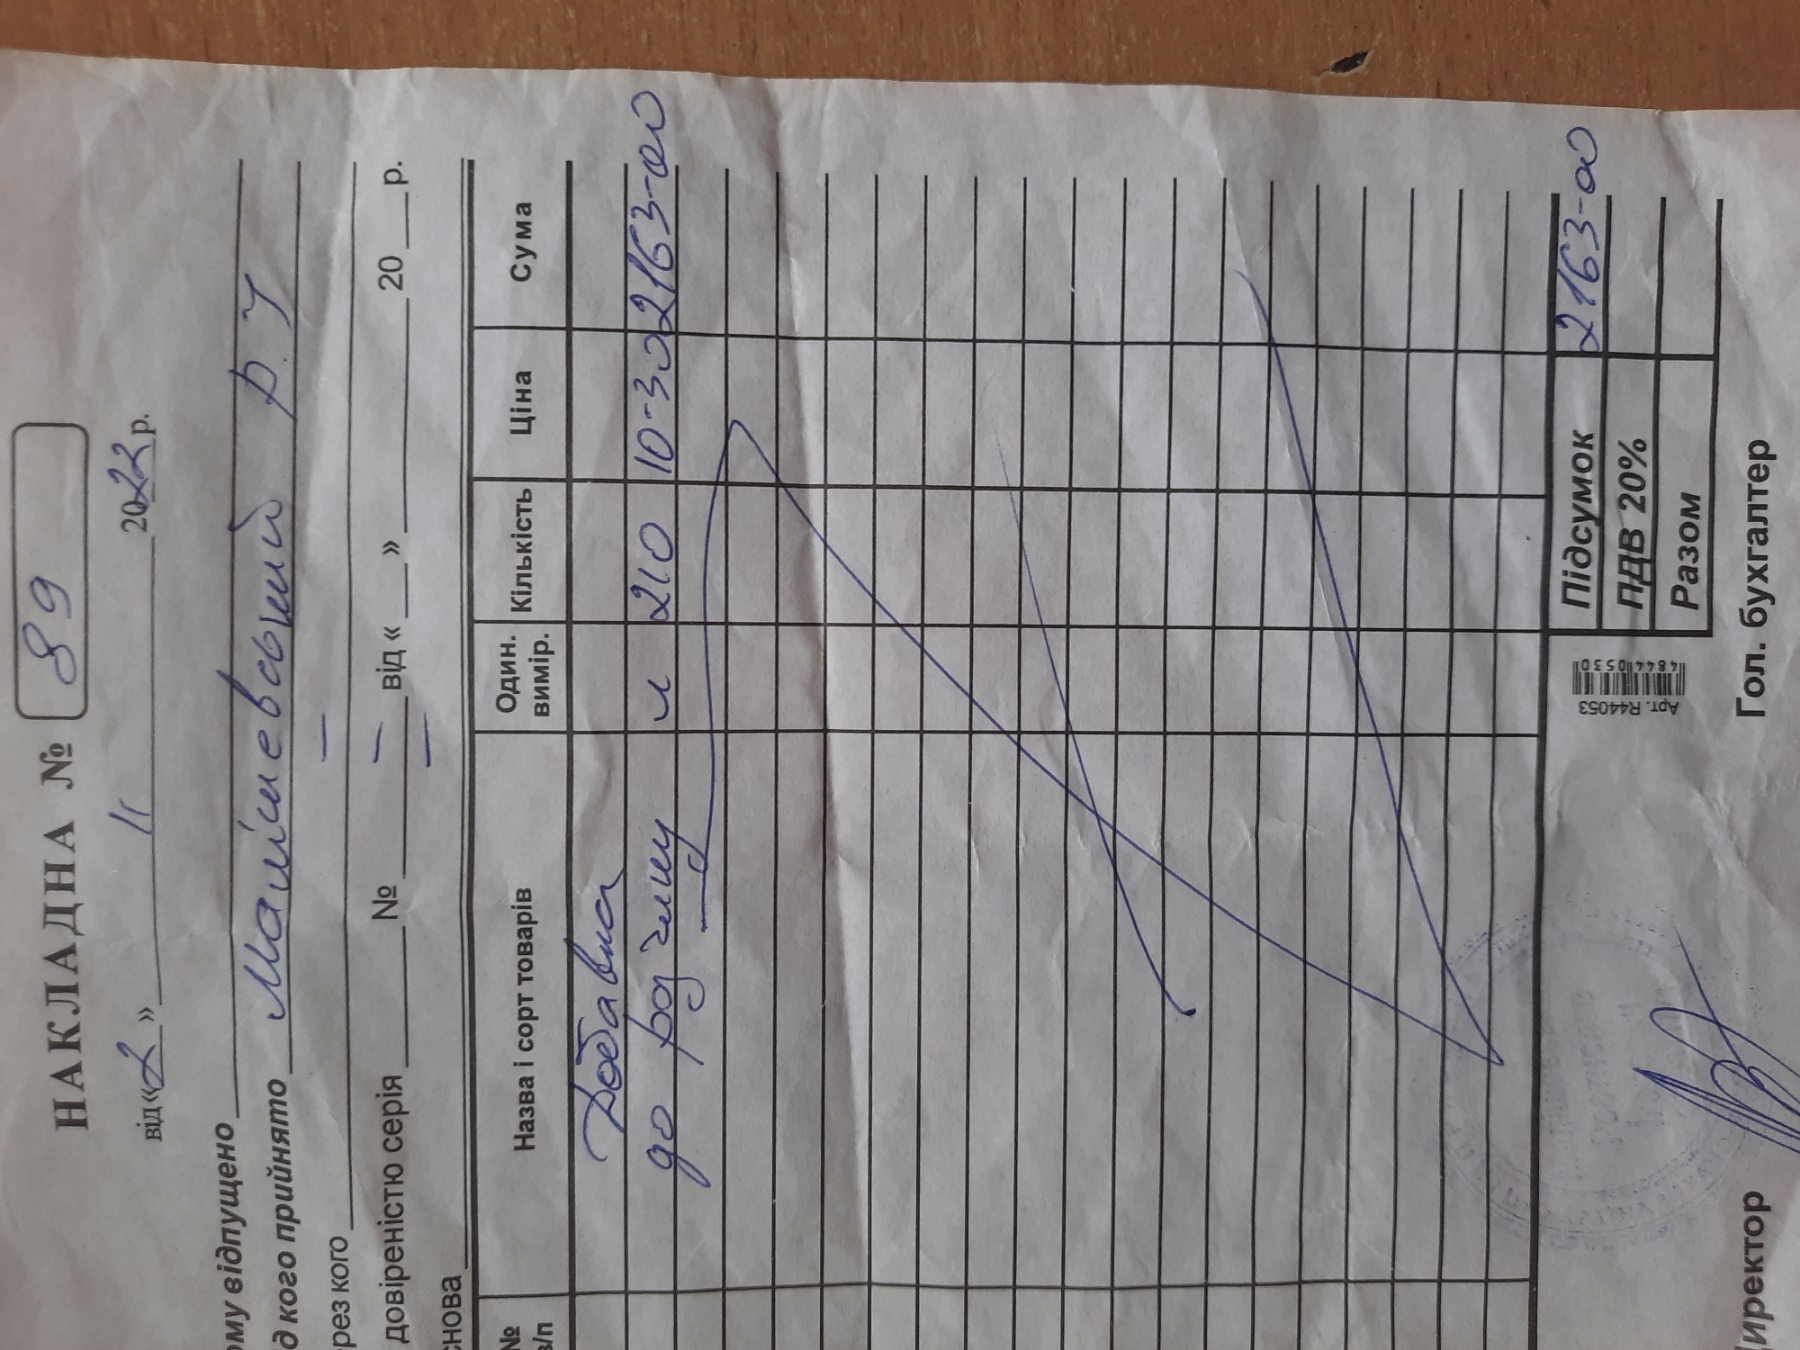 НАКЛАДНА № 89
від «2» 11 2022 р.
ому відпущено
д кого прийнято Малішевський Р.У
рез кого —
довіреністю серія № — від « » 20 р.
снова —
№ з/п Назва і сорт товарів Один. вимір. Кількість Ціна Сума
Добавка
до розчину л 210 10-30 2163-00
Підсумок 2163-00
ПДВ 20%
Разом
Арт. R44053
4844410530
иректор Гол. бухгалтер